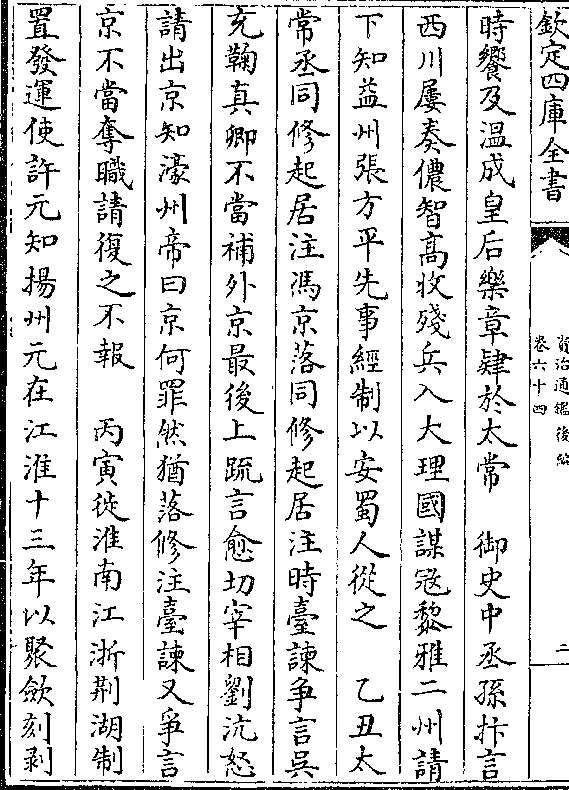 欽定四庫全書
資治通鑑後編
卷六十四
二
時饗及温成皇后樂章肄於太常　御史中丞孫抃言
西川屢奏儂智高收殘兵入大理國謀寇黎雅二州請
下知益州張方平先事經制以安蜀人從之　乙丑太
常丞同修起居注馮京落同修起居注時臺諫爭言吳
充鞠真卿不當補外京最後上疏言愈切宰相劉沆怒
請出京知濠州帝曰京何罪然猶落修注臺諫又爭言
京不當奪職請復之不報　丙寅徙淮南江浙荆湖制
置發運使許元知揚州元在江淮十三年以聚斂刻剥